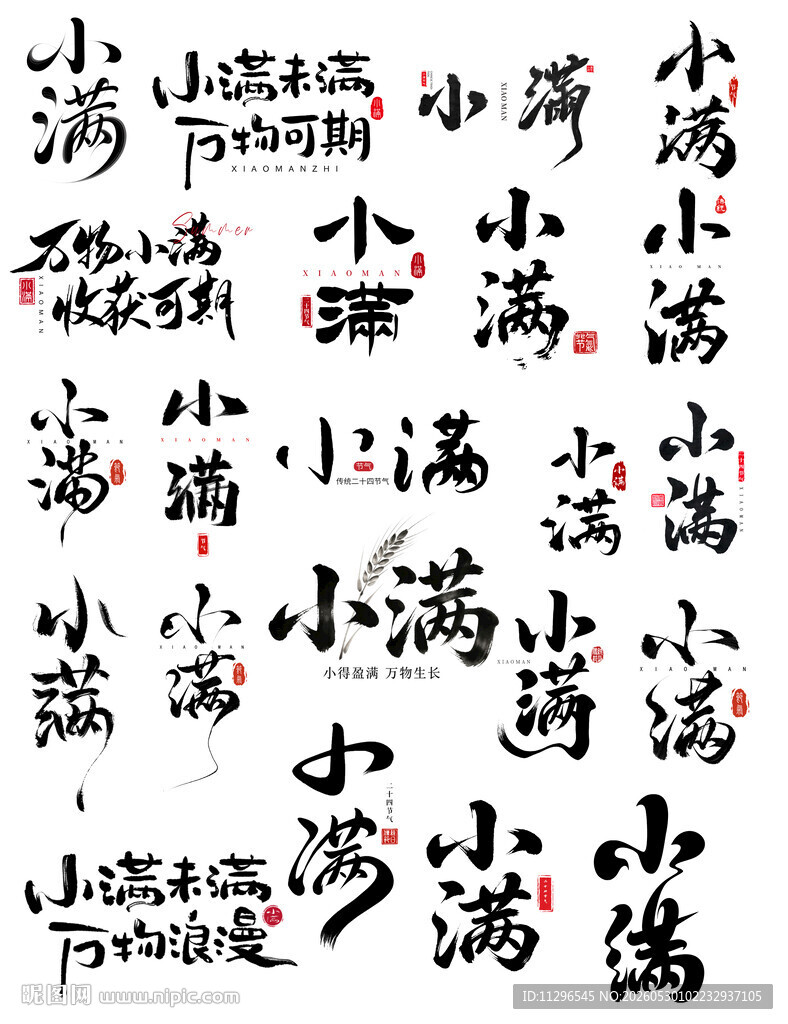 小满
小满未满
万物可期
XIAOMANZHI
小满
小满
XIAOMAN
小满
节气
Summer
万物小满
收获可期
XIAOMAN
小满
小满
XIAOMAN
小满
二十四节气
小满
节气
小满
XIAO MAN
小满
XIAOMAN
小满
XIAOMAN
节气
小满
节气
传统二十四节气
小满
小满
小满
XIAOMAN
小满
小得盈满 万物生长
小满
小满
XIAOMAN
小满
XIAOMAN
小满
XIAOMAN
小满
二十四节气
小满未满
万物浪漫
小满
小满
昵图网 www.nipic.com
ID:11296545 NO:20260530102232937105